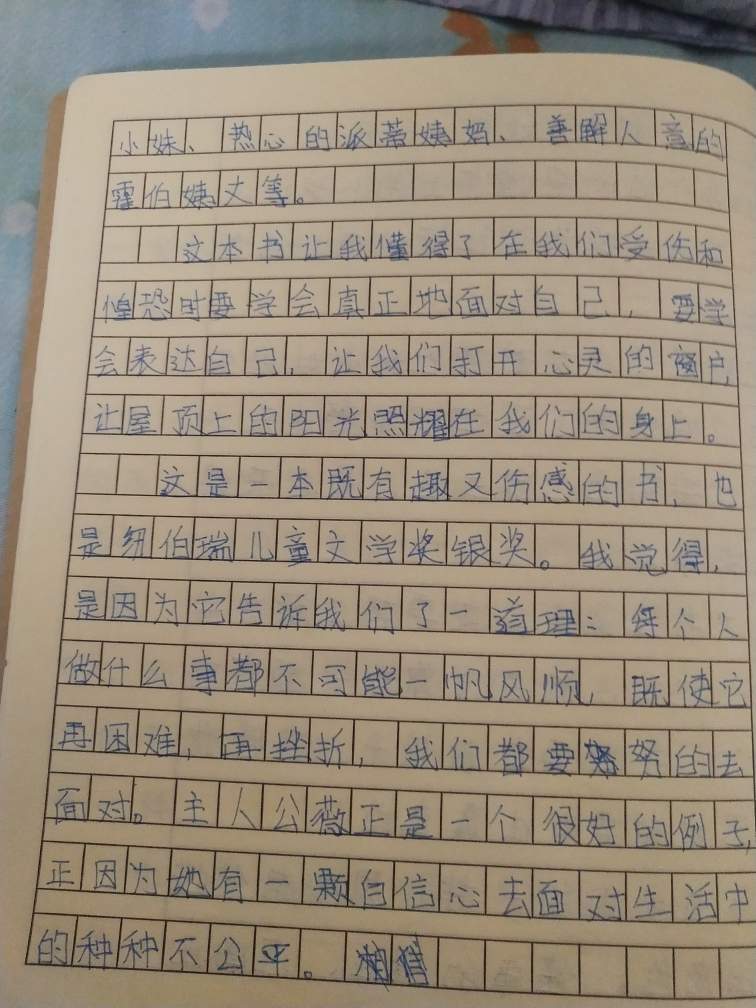 小妹、热心的派蒂姨妈、善解人意的
霍伯姨丈等。
这本书让我懂得了在我们受伤和
惶恐时要学会真正地面对自己，要学
会表达自己，让我们打开心灵的窗户，
让屋顶上的阳光照耀在我们的身上。
这是一本既有趣又伤感的书，也
是纽伯瑞儿童文学奖银奖。我觉得，
是因为它告诉我们了一道理：每个人
做什么事都不可能一帆风顺，既使它
再困难，再挫折，我们都要努的去
面对。主人公薇正是一个很好的例子，
正因为她有一颗自信心去面对生活中
的种种不公平。相信